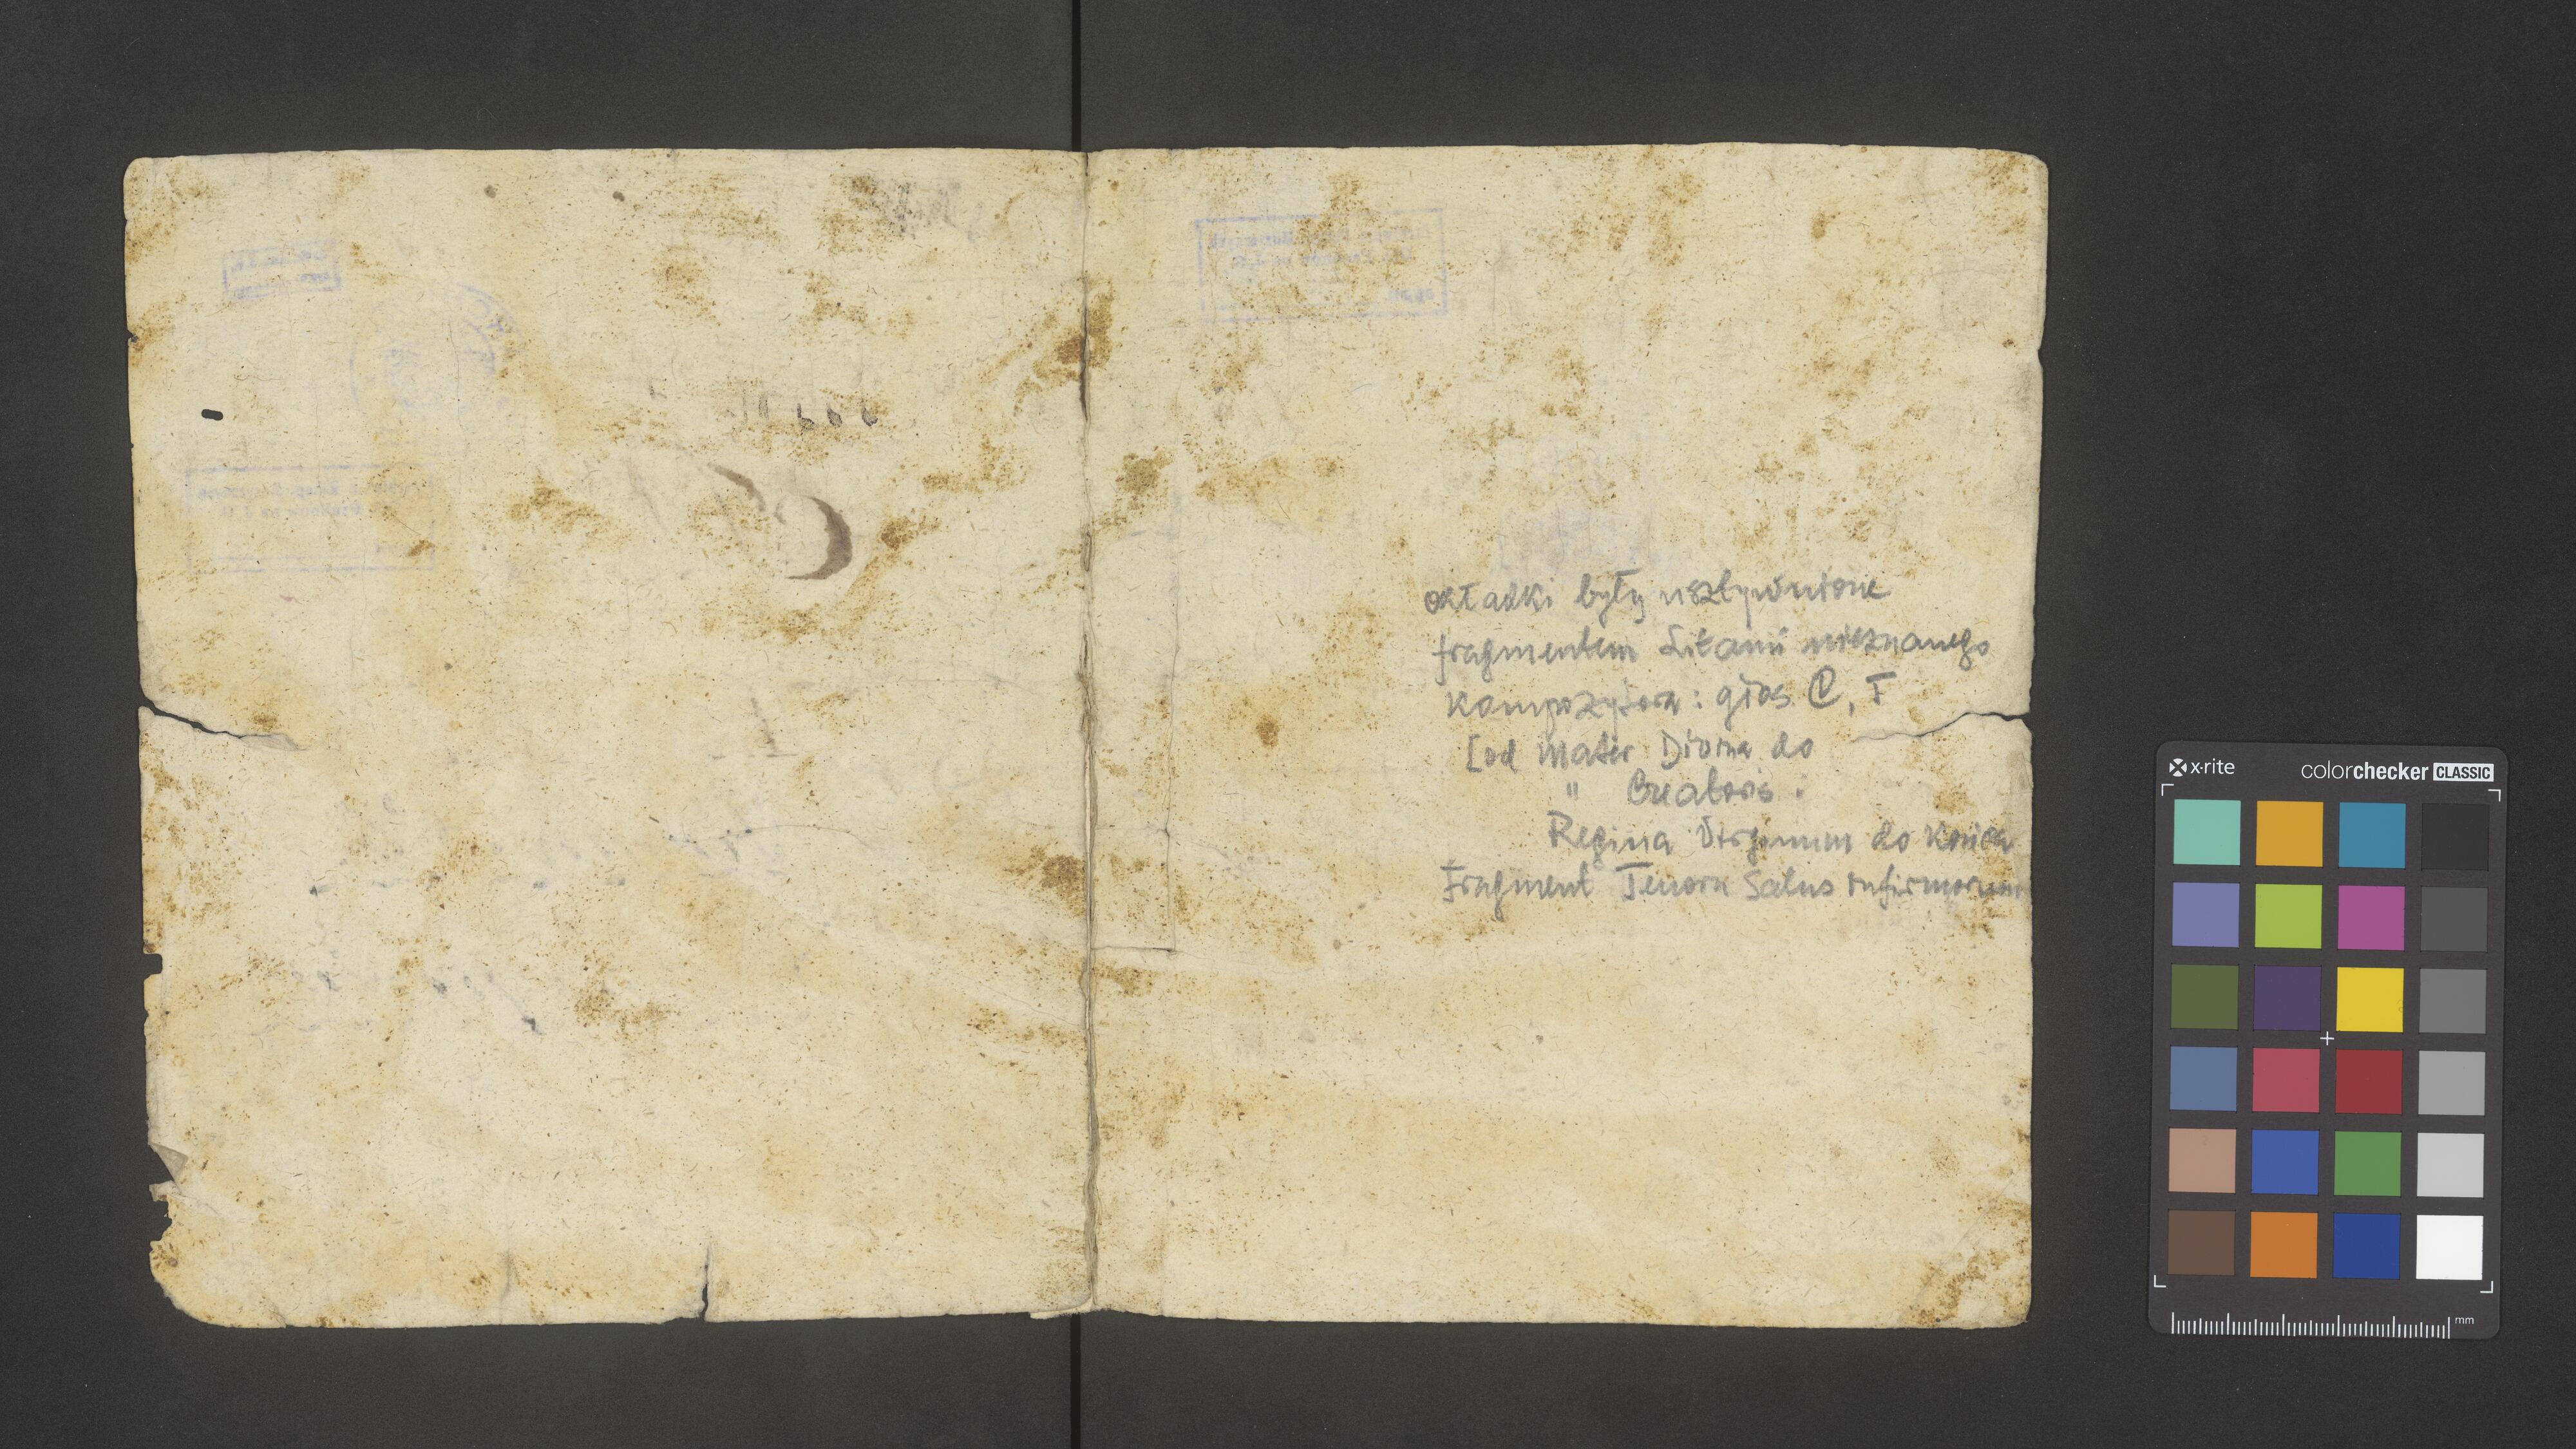 okładki były usztywnione
fragmentem Litanii nieznanego
kompozytora: głos C, T
[od Mater Divinae do
" Creatoris .
Regina Virginum do końca
Fragment Tenora Salus infirmorum
x-rite
colorchecker CLASSIC
mm